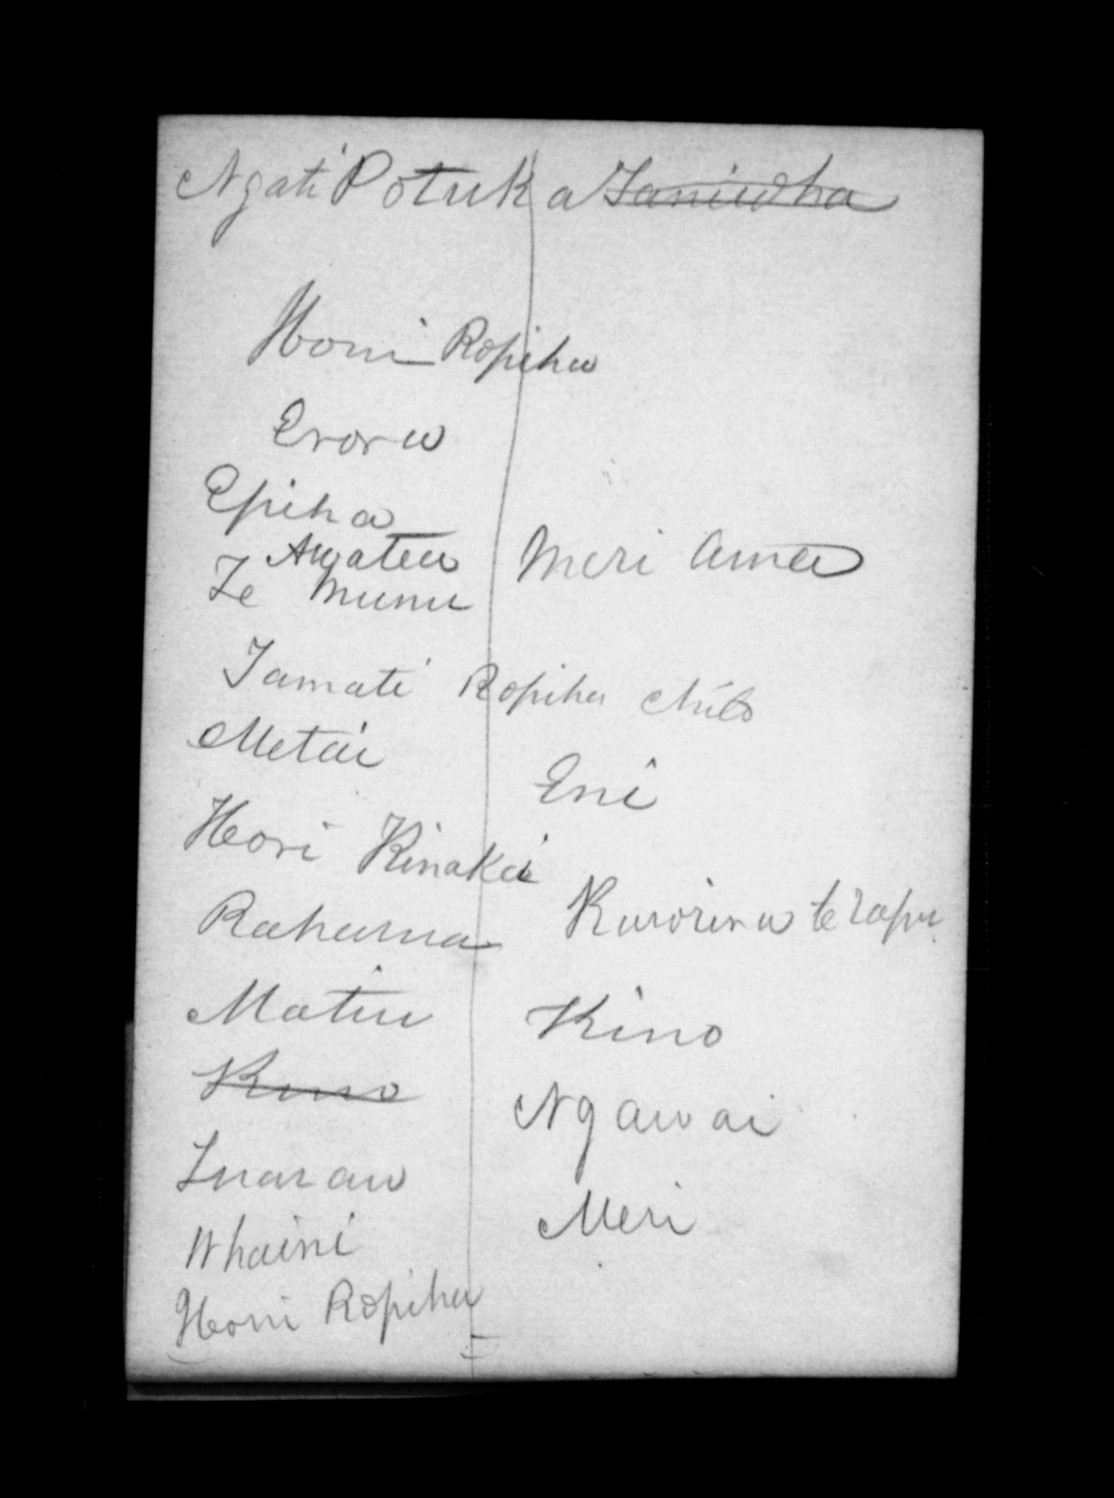 Ngati Potuka Taniwha
Honi Ropiha
Erora
Epiha
Angatea
Te Munu
Meri Ama
Tamati Ropiha child
Metai
Eni
Hori Kinakei
Rahama te rapu
Matiu
Kino
Kino
Ngawai
Meri
Whaini
Honi Ropiha